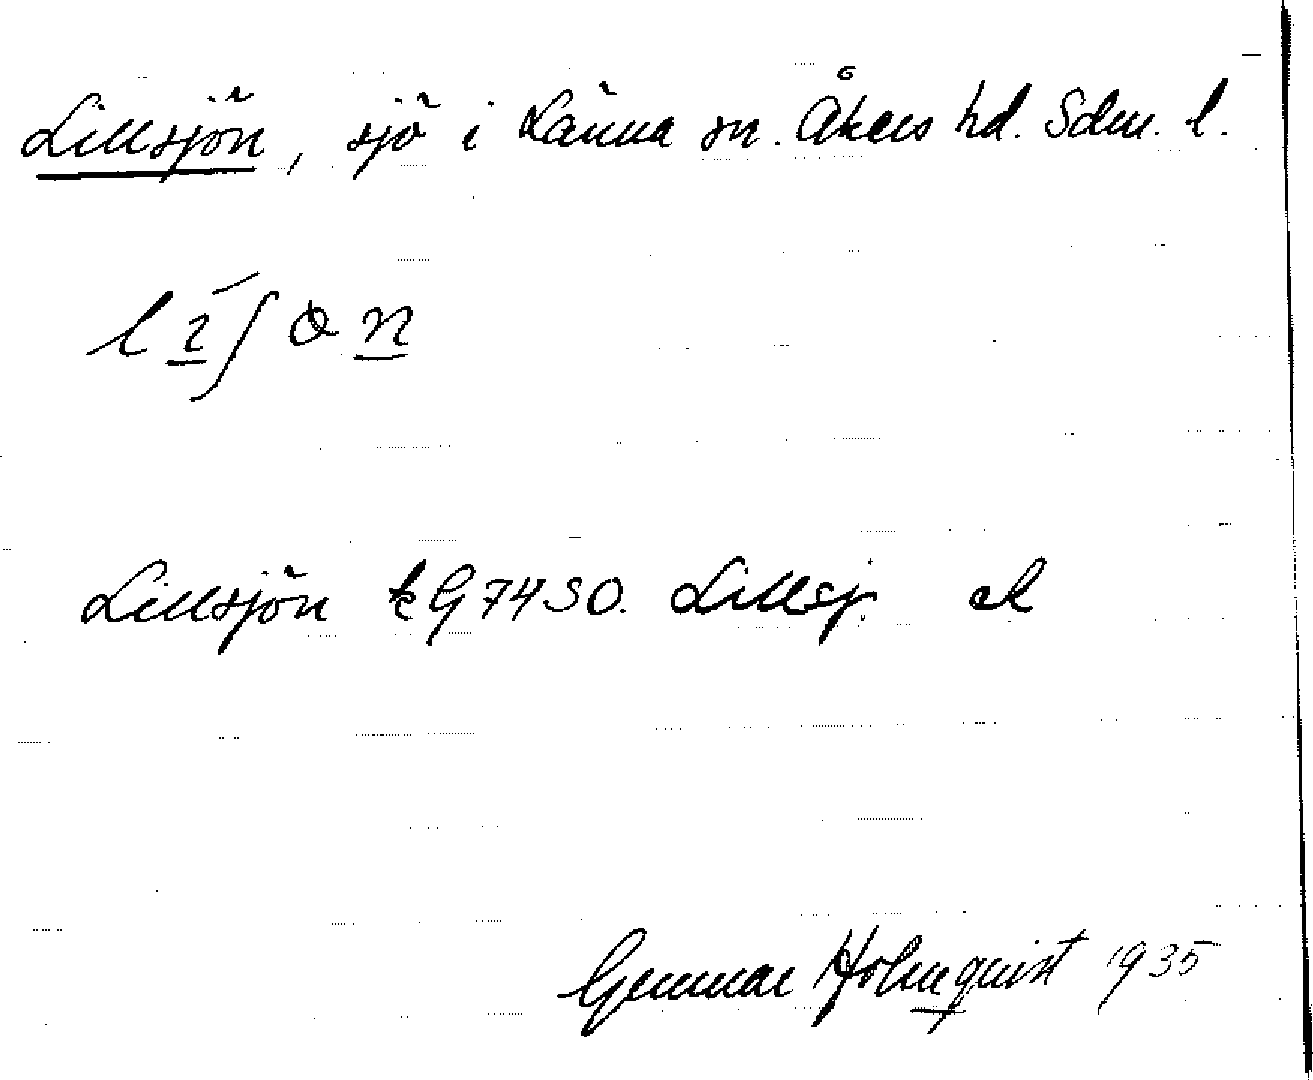 Lillsjön, sjö i Länna sn. Åkers hd. Sdm. l.
lɪʃɵn
Lillsjön k G7430. Lillsj. el
Gunnar Holmquist 1935